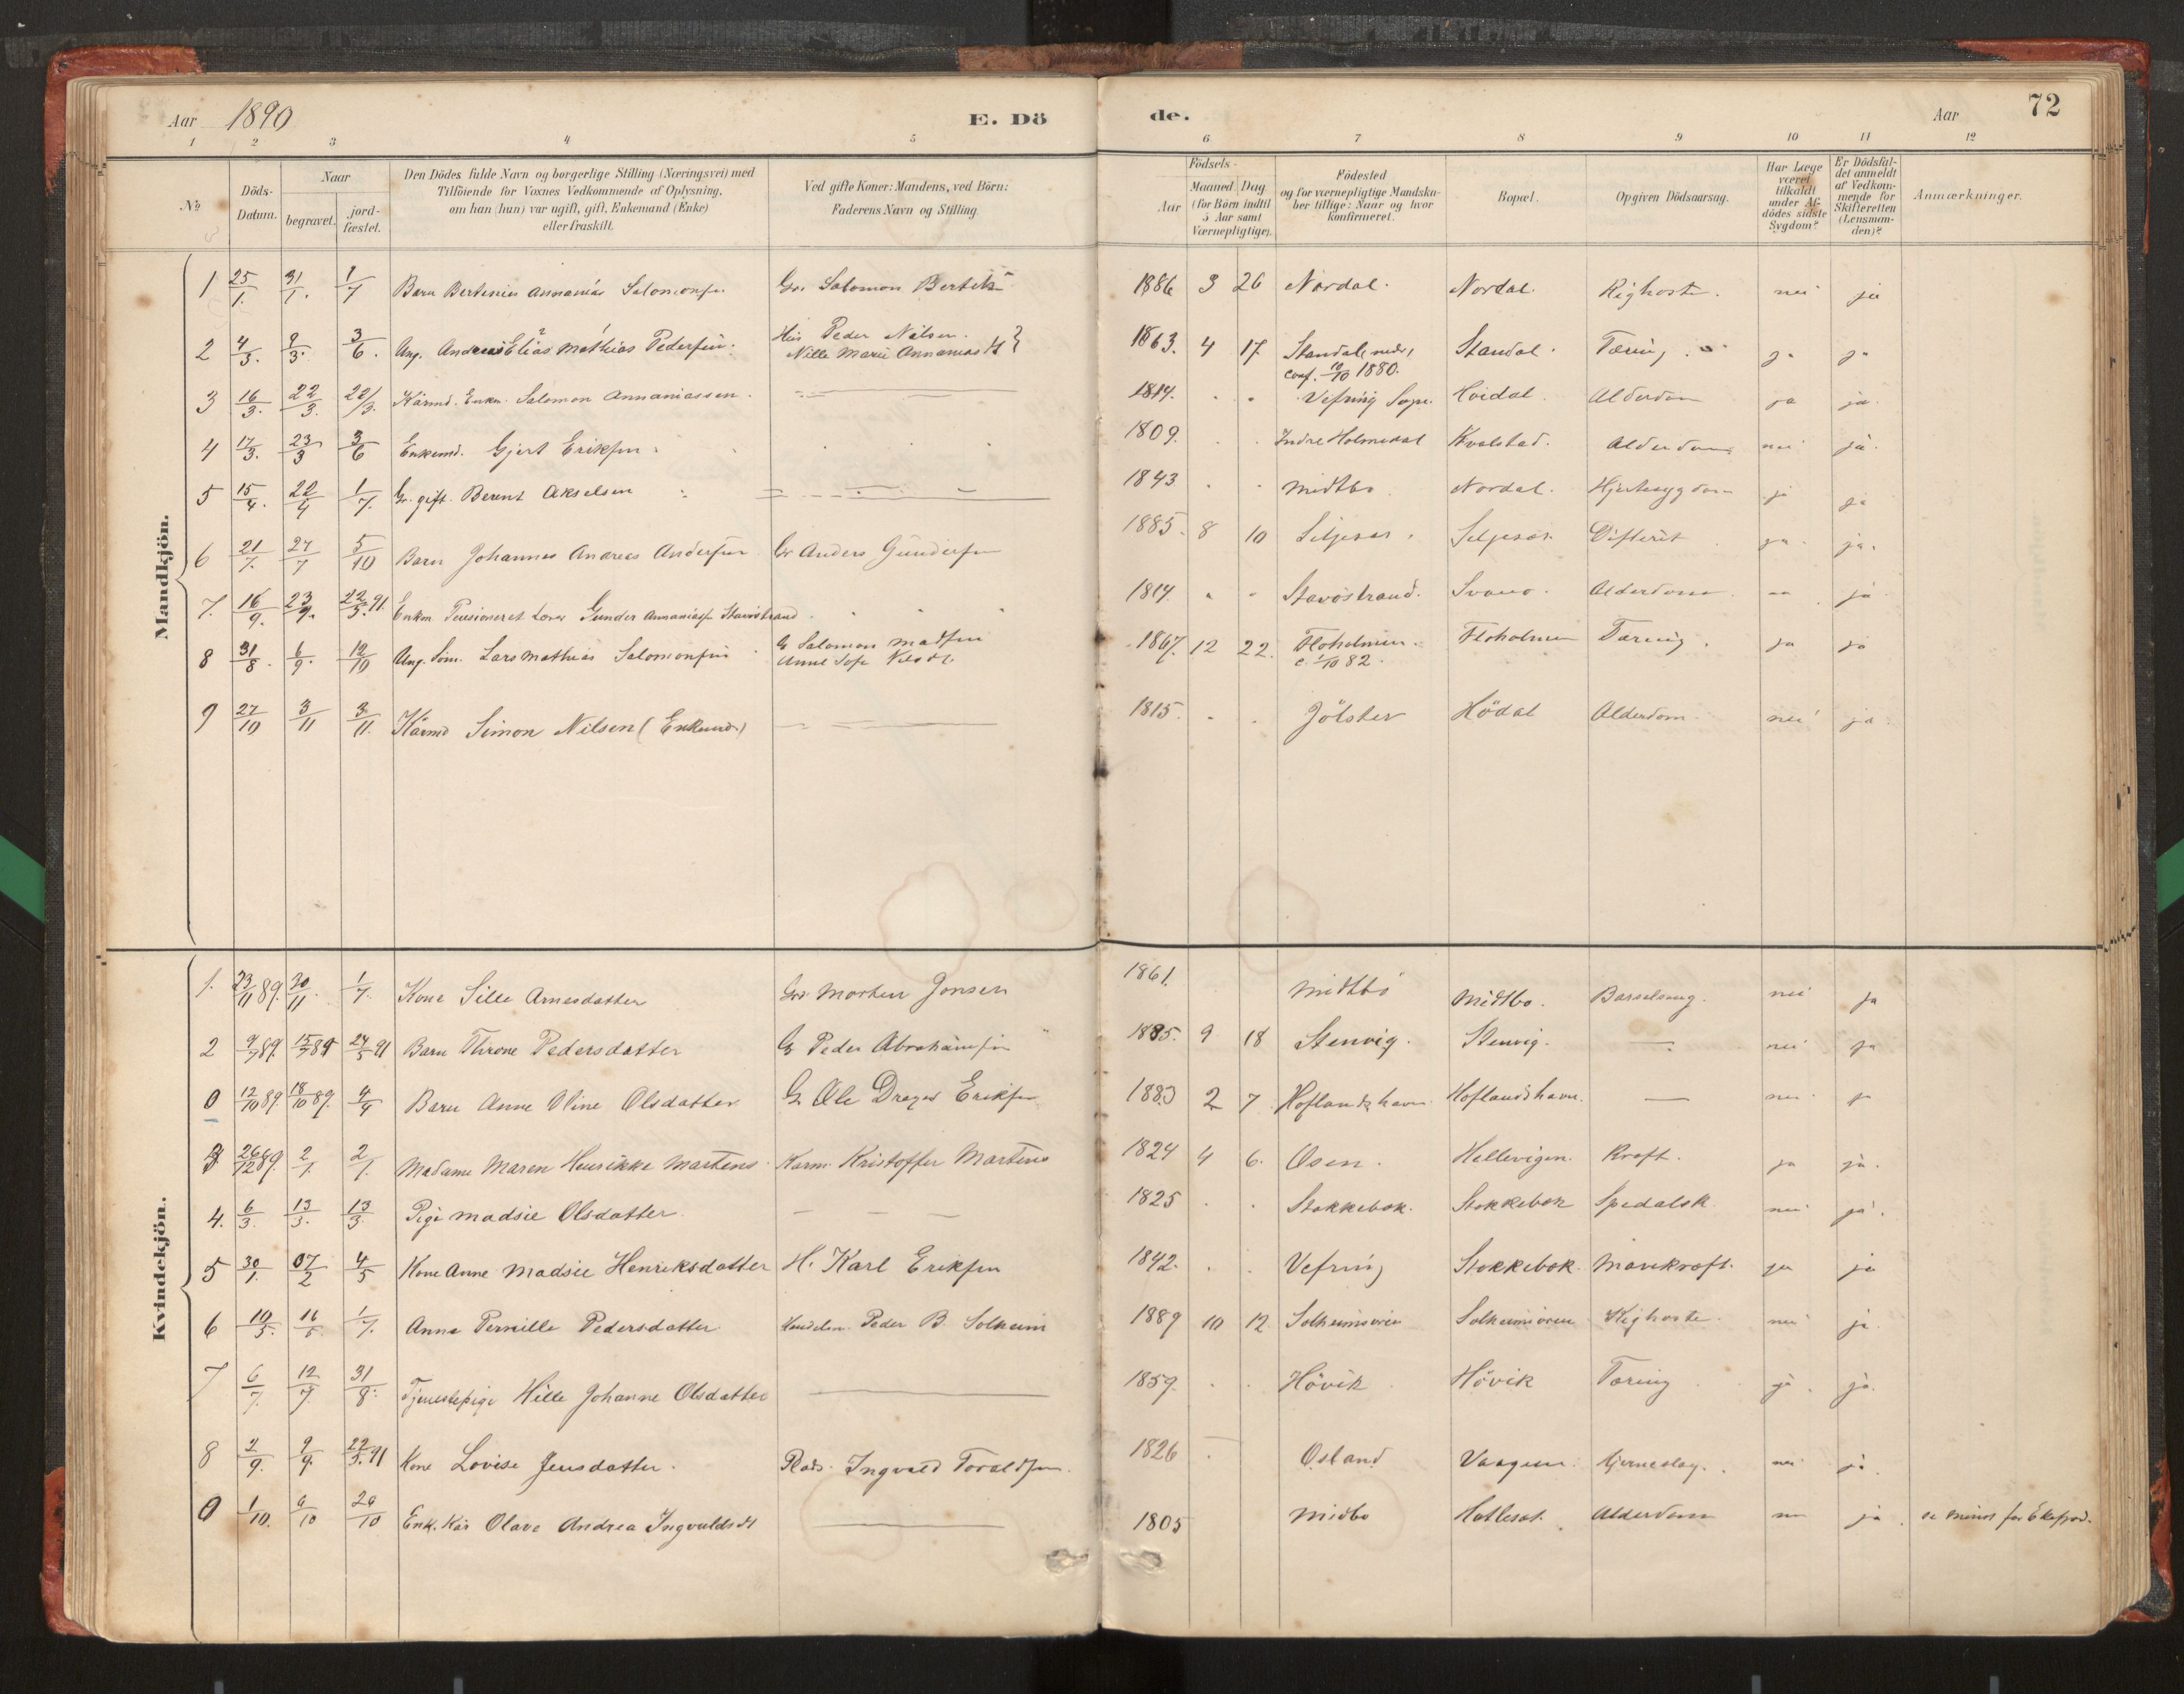 Aar 1890 E. Dö de. Aar 72
1 2 3 4 5 6 7 8 9 10 11 12
No
Döds-Datum.
Naar
begravet.
jord-fæstet.
Den Dödes fulde Navn og borgerlige Stilling (Næringsvei) med
Tilföiende for Voxnes Vedkommende af Oplysning,
om han (hun) var ugift, gift, Enkemand (Enke)
eller fraskilt.
Ved gifte Koner: Mandens, ved Börn:
Faderens Navn og Stilling.
Födsels-
Aar
Maaned. Dag.
(for Börn indtil
5 Aar samt
Værnepligtige).
Födested
og for værnepligtige Mandska-
ber tillige: Naar og hvor
konfirmeret.
Bopæl.
Opgiven Dödsaarsag.
Har Læge
været
tilkaldt
under Af-
dödes sidste
Sygdom?
Er Dödsfal-
det anmeldt
af Vedkom-
mende for
Skifteretten
(Lensman-
den)?
Anmærkninger.
Mandkjön.
1 25/1. 31/1. 1/7 Barn Bertinius Annanias Salomonsen Gr. Salomon Bertels 1886 3 26 Nordal. Nordal. Kighoste. nei ja
2 4/3. 9/3. 3/6. Ung. Andreas Elias Mathias Pedersen. Hus Peder Nilsen. 1863. 4 17. Standal nedr, Standal. Tæring. ja ja
Nille Marie Annanias conf. 10/10 1880.
3 16/3. 22/3. 22/3. Kårmd. Enkm. Salomon Annaniassen. 1814. Vefring Hvidal. Alderdom ja ja.
4 17/3. 23/3 3/6 Enkemd. Gjert Eriksen 1809. Indre Holmedal Kvalstad. Alderdom nei ja.
5 15/4. 22/4 1/7. Gr. gift. Berent Akselsen 1843 Midtbø Nordal. Hjertesygdom ja ja
6 21/7. 27/7 5/10 Barn Johannes Andreas Andersen Gr Anders Gundersen 1885. 8 10 Seljesæt. Seljesæt. Difterit ja. ja.
7. 16/9. 23/9. 22/5.91. Enkm Pensioneret Gunder Annaniass Stavøstrand 1814. Stavøstrand. Svanø. Alderdom ja
8 31/8. 6/9. 12/10 Ung. Søm. Lars Mathias Salomonsen G Salomon Madsen 1867. 12 22. Floholmen. Floholmen Tæring. ja ja
Anne Sofie Nilsdt. c. 1/10 82.
9 27/10 3/11 3/11. Kårmd Simon Nilsen (Enkemd.) 1815. Jölster Hödal Alderdom. nei ja
Kvindekjön.
1. 23/11 89. 30/11. 1/7. Kone Sille Arnesdatter Gr. Morten Jonsen 1861. Midtbö Midtbø. Barselseng. nei ja
2 9/7 89. 15/7 89 24/5 91 Barn Throne Pedersdatter G Peder Abrahamsen 1885. 9 18 Stenvig. Stenvig. nei ja
0 12/10 89. 18/10 89. 4/4 Barn Anne Oline Olsdatter G Ole Drages Eriksen 1883 2 7 Hoflandshavn Hoflandshavn. nei ja
3 26/12 89. 2/1. 2/1. Madame Maren Henrikke Martens Karm. Kristoffer Martens 1824 4 6. Osen. Hellevigen. Kræft. ja ja.
4. 6/3. 13/3. 13/3 Pige Madsie Olsdatter. 1825 Stokkebæk. Stokkebæk Spedalsk nei ja.
5 30/1. 07/2 4/5 Kone Anne Madsie Henriksdatter H. Karl Eriksen 1842. Vefring Stokkebæk. Mavekræft. ja ja
6 10/5. 16/5. 1/7. Anna Pernille Pedersdatter Handelsm. Peder B. Solheim 1889 10 12 Solheimsøren Solheimsøren Kighoste. nei ja.
7 6/7. 12/7. 31/8. Tjenestepige Hille Johanne Olsdatter 1859. Hövik Hövik Tæring ja. ja.
8 2/9. 9/9. 22/5.91 Kone Lovise Jensdatter. Plads. Ingvald Toraldsen. 1826 Osland Vaagene. Hjerneslag. nei ja.
0 1/10. 6/10 20/10 Enk. Kår Olave Andrea Ingvaldsdt 1805 Midbø Hatleset. Alderdom nei ja.